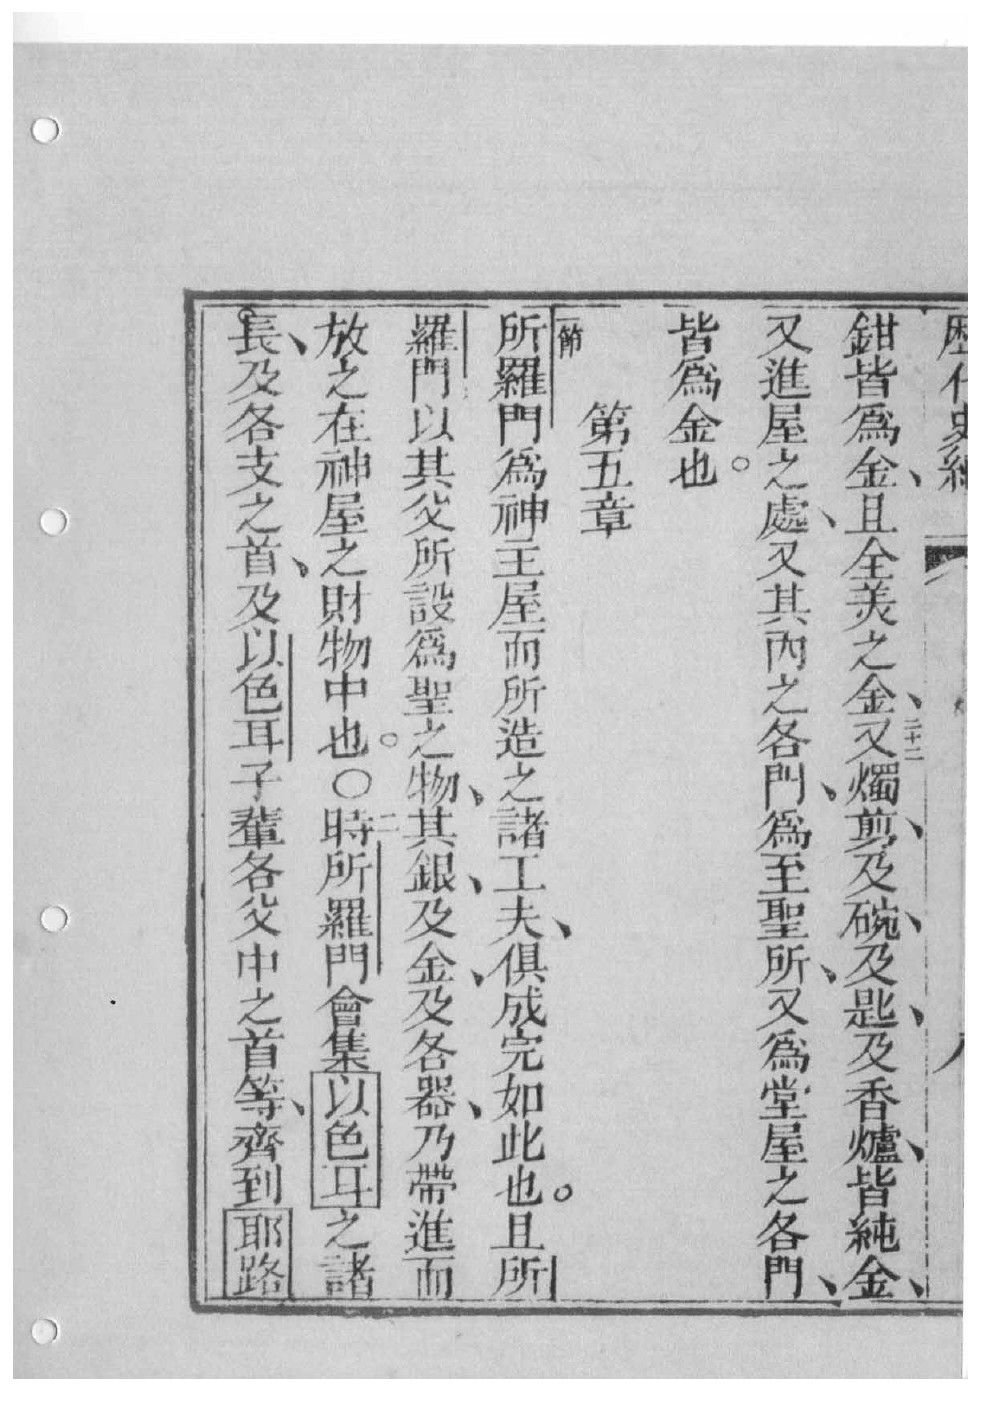 歴代史紀
鉗皆爲金、且全美之金、二十二又燭剪、及碗、及匙、及香爐、皆純金、
又進屋之處、又其內之各門、爲至聖所、又爲堂屋之各門、
皆爲金也。
第五章
一節 所羅門爲神王屋而所造之諸工夫、俱成完如此也。且所
羅門以其父所設爲聖之物、其銀、及金、及各器、乃帶進而
放之在神屋之財物中也。〇二時所羅門會集以色耳之諸
長、及各支之首、及以色耳子輩各父中之首等、齊到耶路